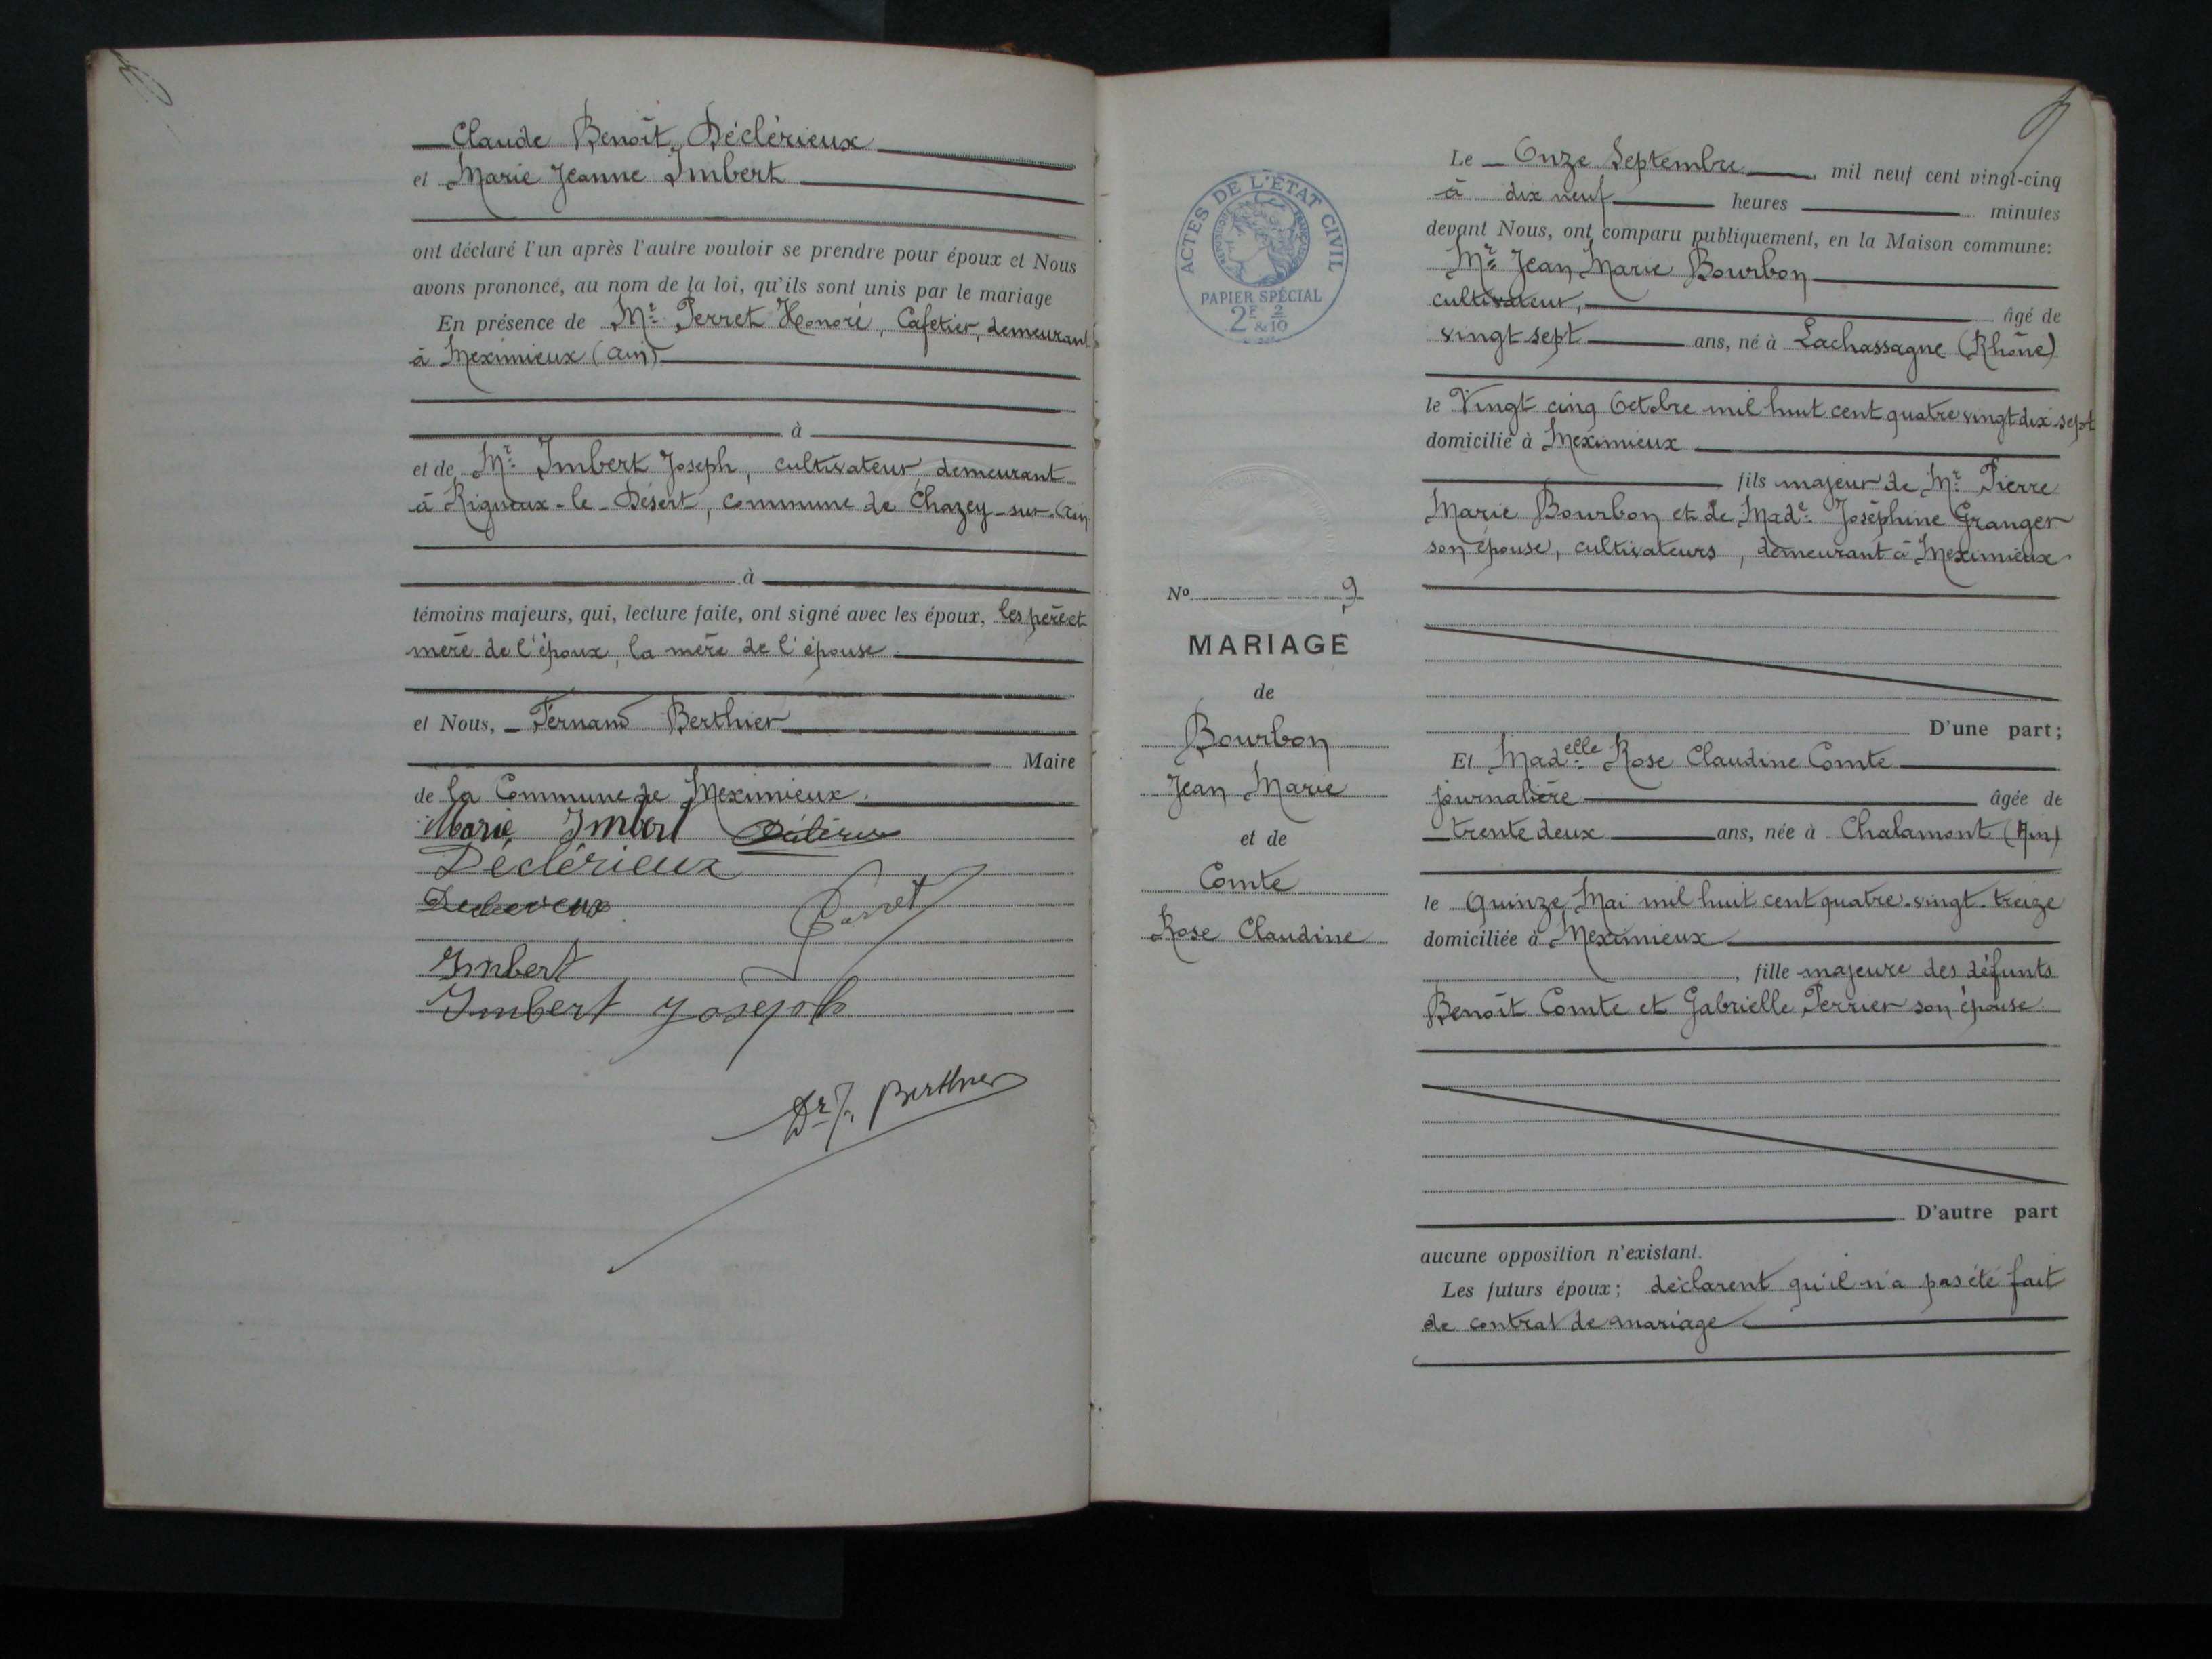 Claude Benoît Déclérieux
et Marie Jeanne Imbert
ont déclaré l'un après l'autre vouloir se prendre pour époux et Nous
avons prononcé, au nom de la loi, qu'ils sont unis par le mariage
En présence de Mr Perret Honoré, Cafetier, demeurant
à Meximieux (Ain)
à
et de Mr Imbert Joseph, cultivateur, demeurant
à Rigneux-le-Désert, commune de Chazey-sur-Ain
à
témoins majeurs, qui, lecture faite, ont signé avec les époux, les père et
mère de l'époux, la mère de l'épouse
et Nous, Fernand Berthier
Maire
de la Commune de Meximieux.
Marie Imbert
Déclérieux
Perret
Imbert
Imbert Joseph
Dr F. Berthier
9
Le Onze Septembre mil neuf cent vingt-cinq
à dix neuf heures minutes
devant Nous, ont comparu publiquement, en la Maison commune:
Mr Jean Marie Bourbon
cultivateur, âgé de
vingt sept ans, né à Lachassagne (Rhône)
le Vingt cinq Octobre mil huit cent quatre vingt dix sept
domicilié à Meximieux
fils majeur de Mr Pierre
Marie Bourbon et de Made Joséphine Granger
son épouse, cultivateurs, demeurant à Meximieux
D'une part;
Et Madelle Rose Claudine Comte
journalière âgée de
trente deux ans, née à Chalamont (Ain)
le Quinze Mai mil huit cent quatre-vingt-treize
domiciliée à Meximieux
, fille majeure des défunts
Benoît Comte et Gabrielle Perrier son épouse
D'autre part
aucune opposition n'existant.
Les futurs époux; déclarent qu'il n'a pas été fait
de contrat de mariage
ACTES DE L'ÉTAT CIVIL
RÉPUBLIQUE FRANÇAISE
PAPIER SPÉCIAL
2F & 2/10
No 9
MARIAGE
de
Bourbon
Jean Marie
et de
Comte
Rose Claudine